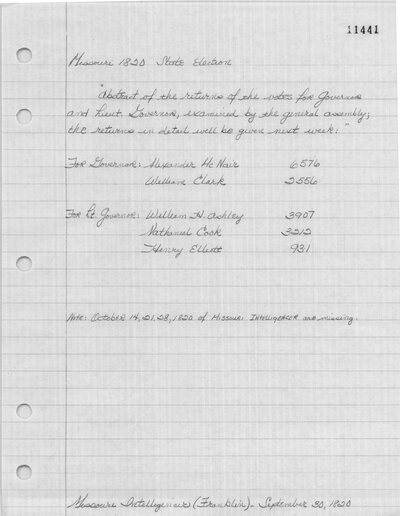 11441
Missouri 1820 State Election
"Abstract of the returns of the votes for Governor
and Lieut. Governor, examined by the general assembly;
the returns in detail will be given next week:"
For Governor: Alexander McNair 6576
William Clark 2556
For Lt. Governor: William H. Ashley 3907
Nathaniel Cook 3212
Henry Elliott 931
Note: October 14, 21, 28, 1820 of Missouri Intelligencer are missing.
Missouri Intelligencer (Franklin). September 30, 1820